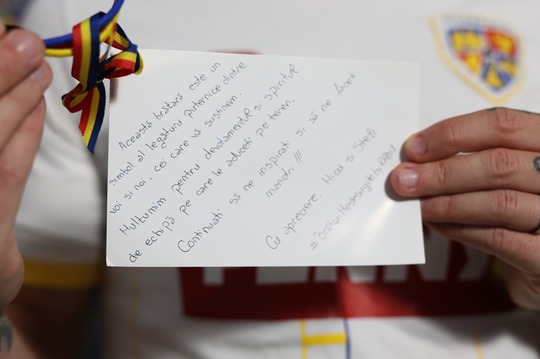 Această brățară este un
simbol al legăturii puternice dintre
voi si noi, cei care vă susținem.
Mulțumim pentru devotamentul si spiritul
de echipă pe care le aduceți pe teren.
Continuati să ne inspirati si să ne faceti
mandri!!!
Cu apreciere, Micu si Stefi
PENNY